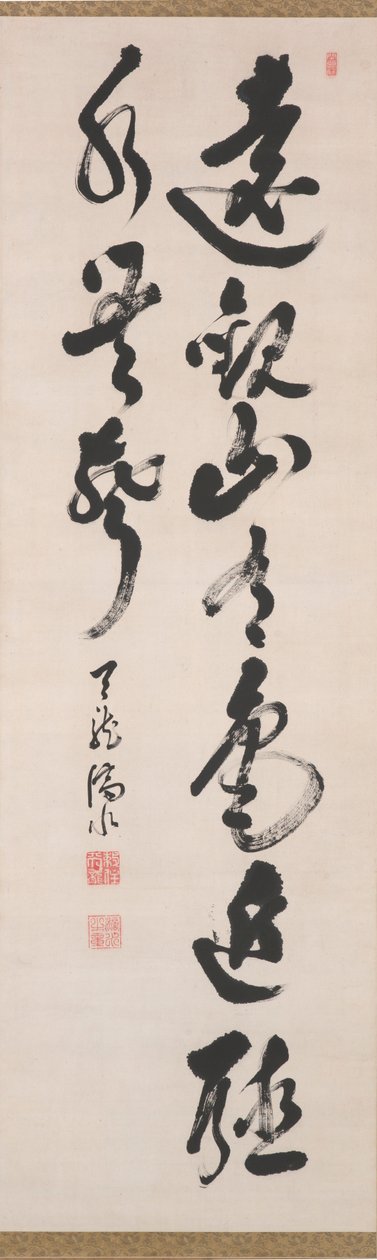 遠観山有色近聴
水無声
天龍滴水